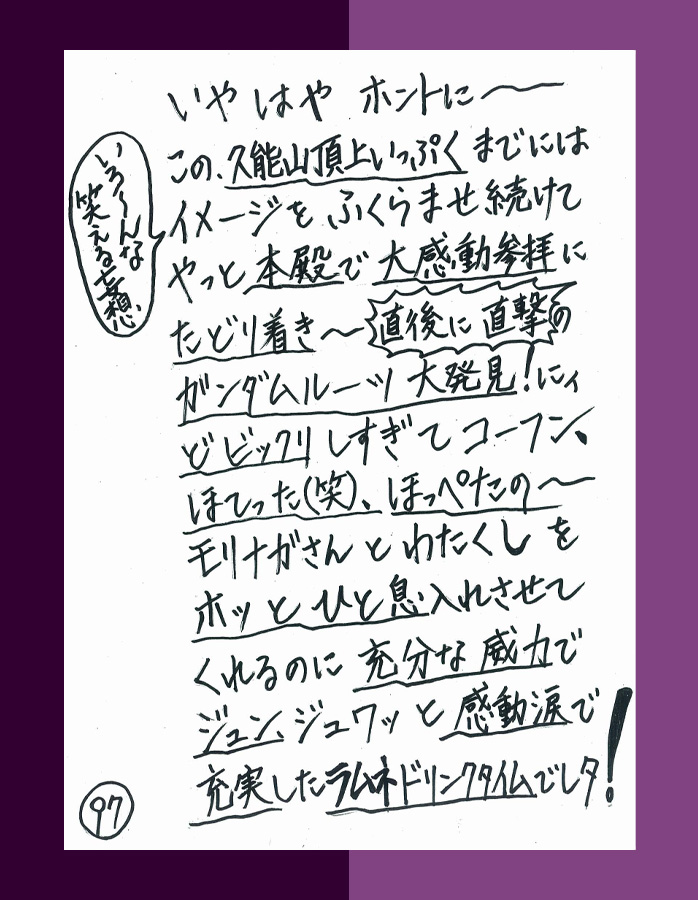 いやはや ホントに〜
この、久能山頂上いっぷく までには
イメージを ふくらませ続けて
やっと 本殿で 大感動参拝に
たどり着き〜 直後に 直撃の
ガンダムルーツ 大発見！にィ
どビックリ しすぎて コーフン、
ほてった(笑)、ほっぺたの〜
モリナガさん と わたくし を
ホッ と ひと息入れさせて
くれるのに 充分な 威力で
ジュン、ジュワッ と 感動涙で
充実したラムネドリンクタイムでしタ！
いろ〜んな
笑える妄想
97